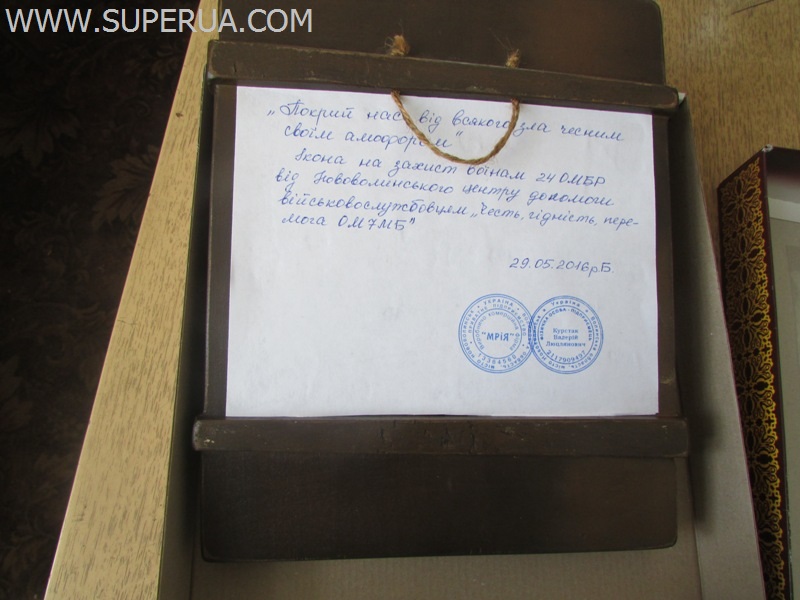 WWW.SUPERUA.COM
„Покрий нас від всякого зла чесним
своїм амофором"
Ікона на захист воїнам 24 ОМБР
від Нововолинського центру допомоги
військовослужбовцям „Честь, гідність, пере-
мога ОМ7МБ"
29.05.2016р.Б.
"МРІЯ"
Україна
Україна
Курстак
Валерій
Люцинович